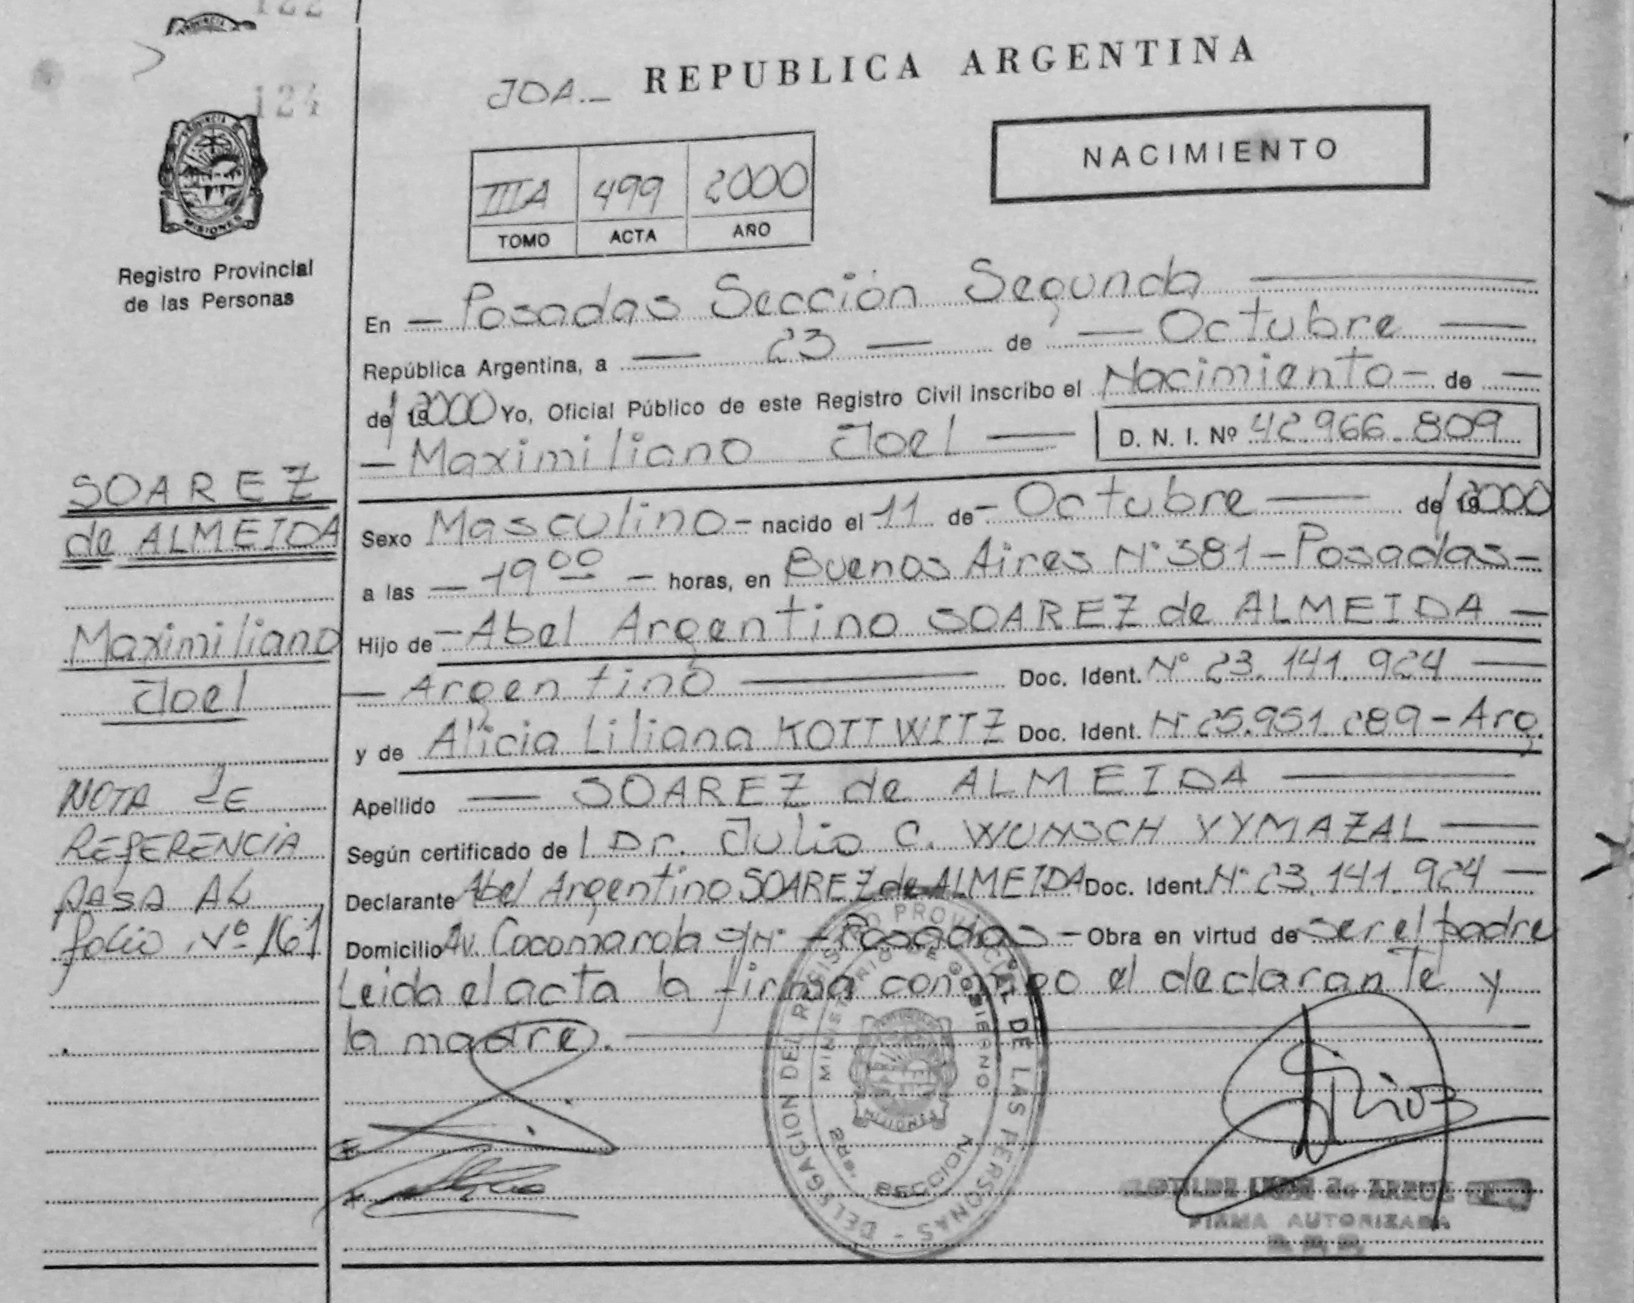 122
PROVINCIA
124
PROVINCIA DE
MISIONES
Registro Provincial
de las Personas
JOA.-
REPUBLICA ARGENTINA
NACIMIENTO
IIIA 499 2000
TOMO ACTA AÑO
En — Posadas Sección Segunda —
República Argentina, a — 23 — de — Octubre —
de 19 2000 Yo, Oficial Público de este Registro Civil inscribo el Nacimiento - de —
— Maximiliano Joel — D. N. I. Nº 42.966.809
SOAREZ
de ALMEIDA
Maximiliano
Joel
NOTA DE
REFERENCIA
PASA AL
folio Nº 161
Sexo Masculino - nacido el 11 de - Octubre — de 19 2000
a las — 19 00 — horas, en Buenos Aires Nº 381 - Posadas -
Hijo de - Abel Argentino SOAREZ de ALMEIDA —
— Argentino — Doc. Ident. Nº 23.141.924 —
y de Alicia Liliana KOTTWITZ Doc. Ident. Nº 25.951.289 - Arg.
Apellido — SOAREZ de ALMEIDA —
Según certificado de Dr. Julio C. WUNSCH VYMAZAL —
Declarante Abel Argentino SOAREZ de ALMEIDA Doc. Ident. Nº 23.141.924 —
Domicilio Av. Cocomarola S/Nº - Posadas - Obra en virtud de ser el padre
Leida el acta la firma conmigo el declarante y
la madre. —
DELEGACION DEL REGISTRO PROVINCIAL DE LAS PERSONAS -
MINISTERIO DE GOBIERNO
MISIONES
SECCION
FIRMA AUTORIZADA